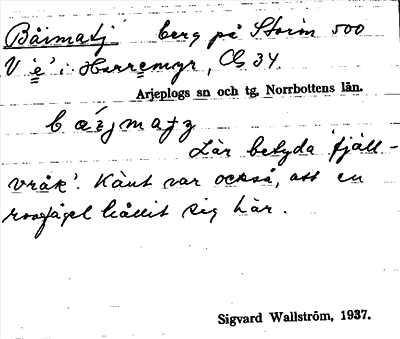 Båimatj berg på Storm 500
V é i Harremyr, Cb 34.
Arjeplogs sn och tg, Norrbottens län.
Lär betyda 'fjäll-
vråk'. Känt var också, att en
rovfågel hållit sig här.
Sigvard Wallström, 1937.